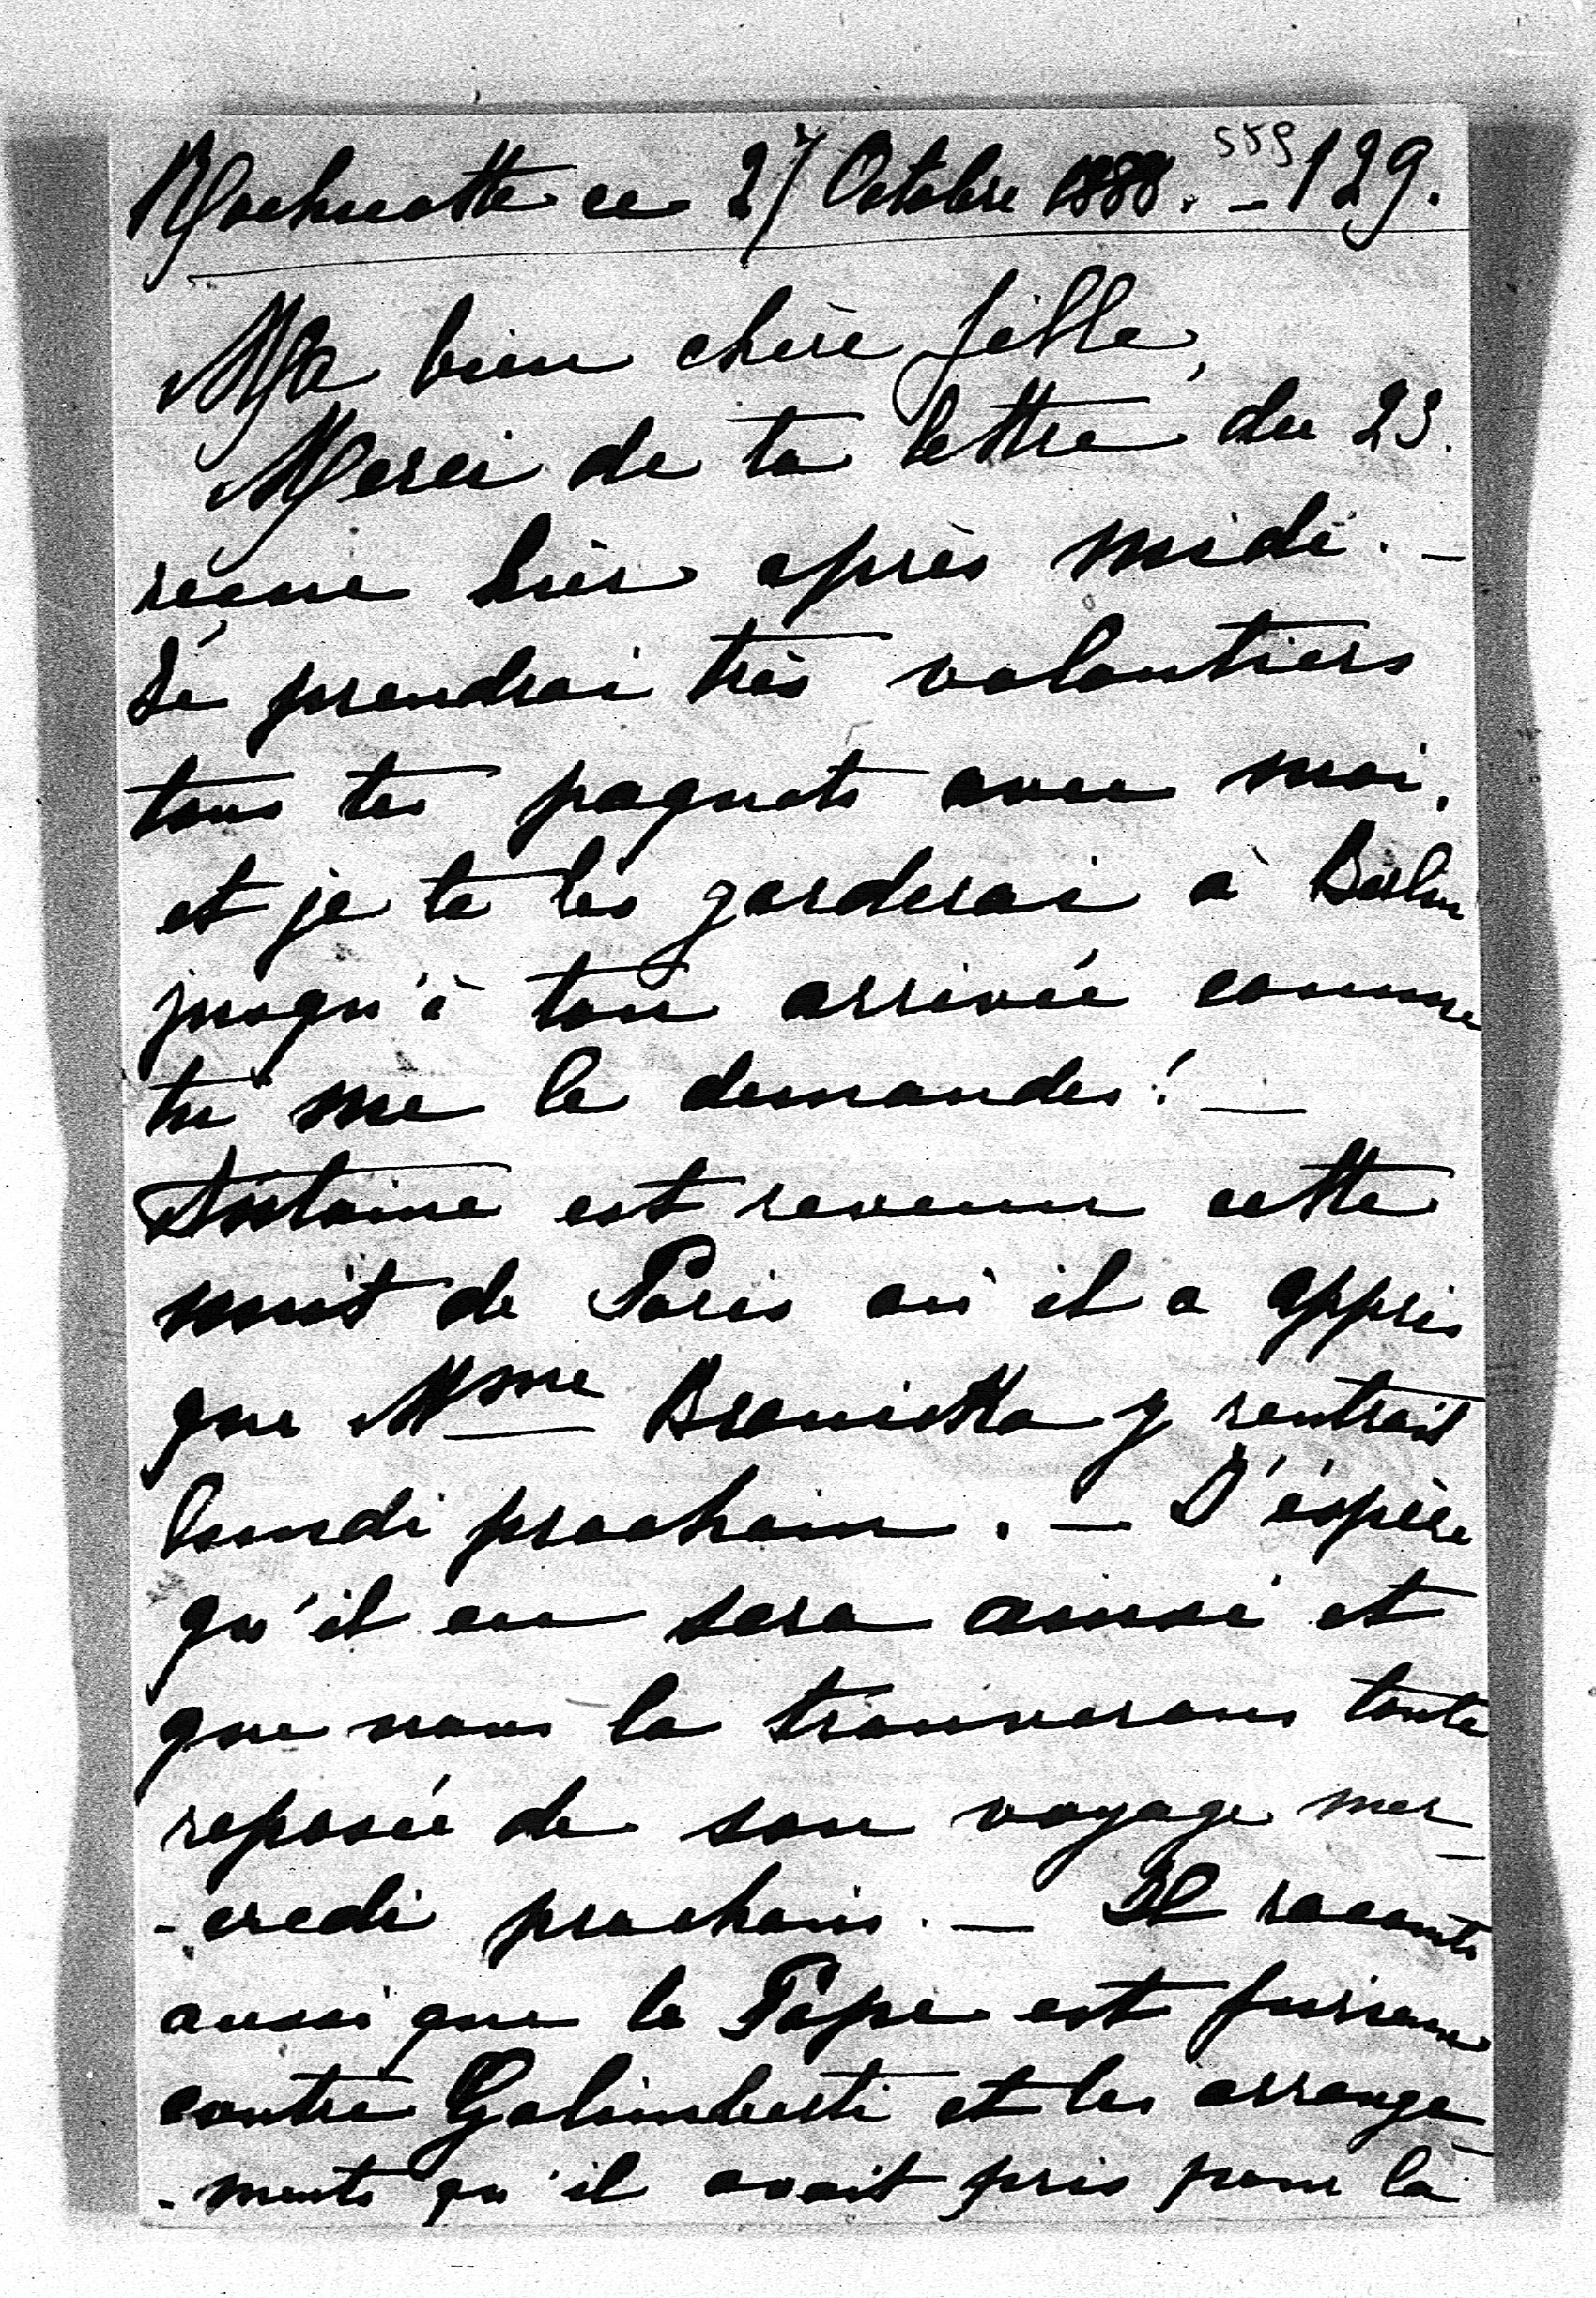 Rochecotte ce 27 Octobre 1888. – 129.
559
Ma bien chère fille,
Merci de ta lettre du 23.
reçue hier après midi. –
Je prendrai très volontiers
tous tes paquets avec moi,
et je te les garderai à Berlin
jusqu'à ton arrivée comme
tu me le demandes! –
Antoine est revenu cette
nuit de Paris où il a appris
que Mme Branicka y rentrait
lundi prochain. – J'éspère
qu'il en sera ainsi et
que nous la trouverons toute
reposée de son voyage mer-
-credi prochain. – Il raconte
aussi que le Pape est furieux
contre Galimberti et les arrange-
-ments qu'il avait pris pour la